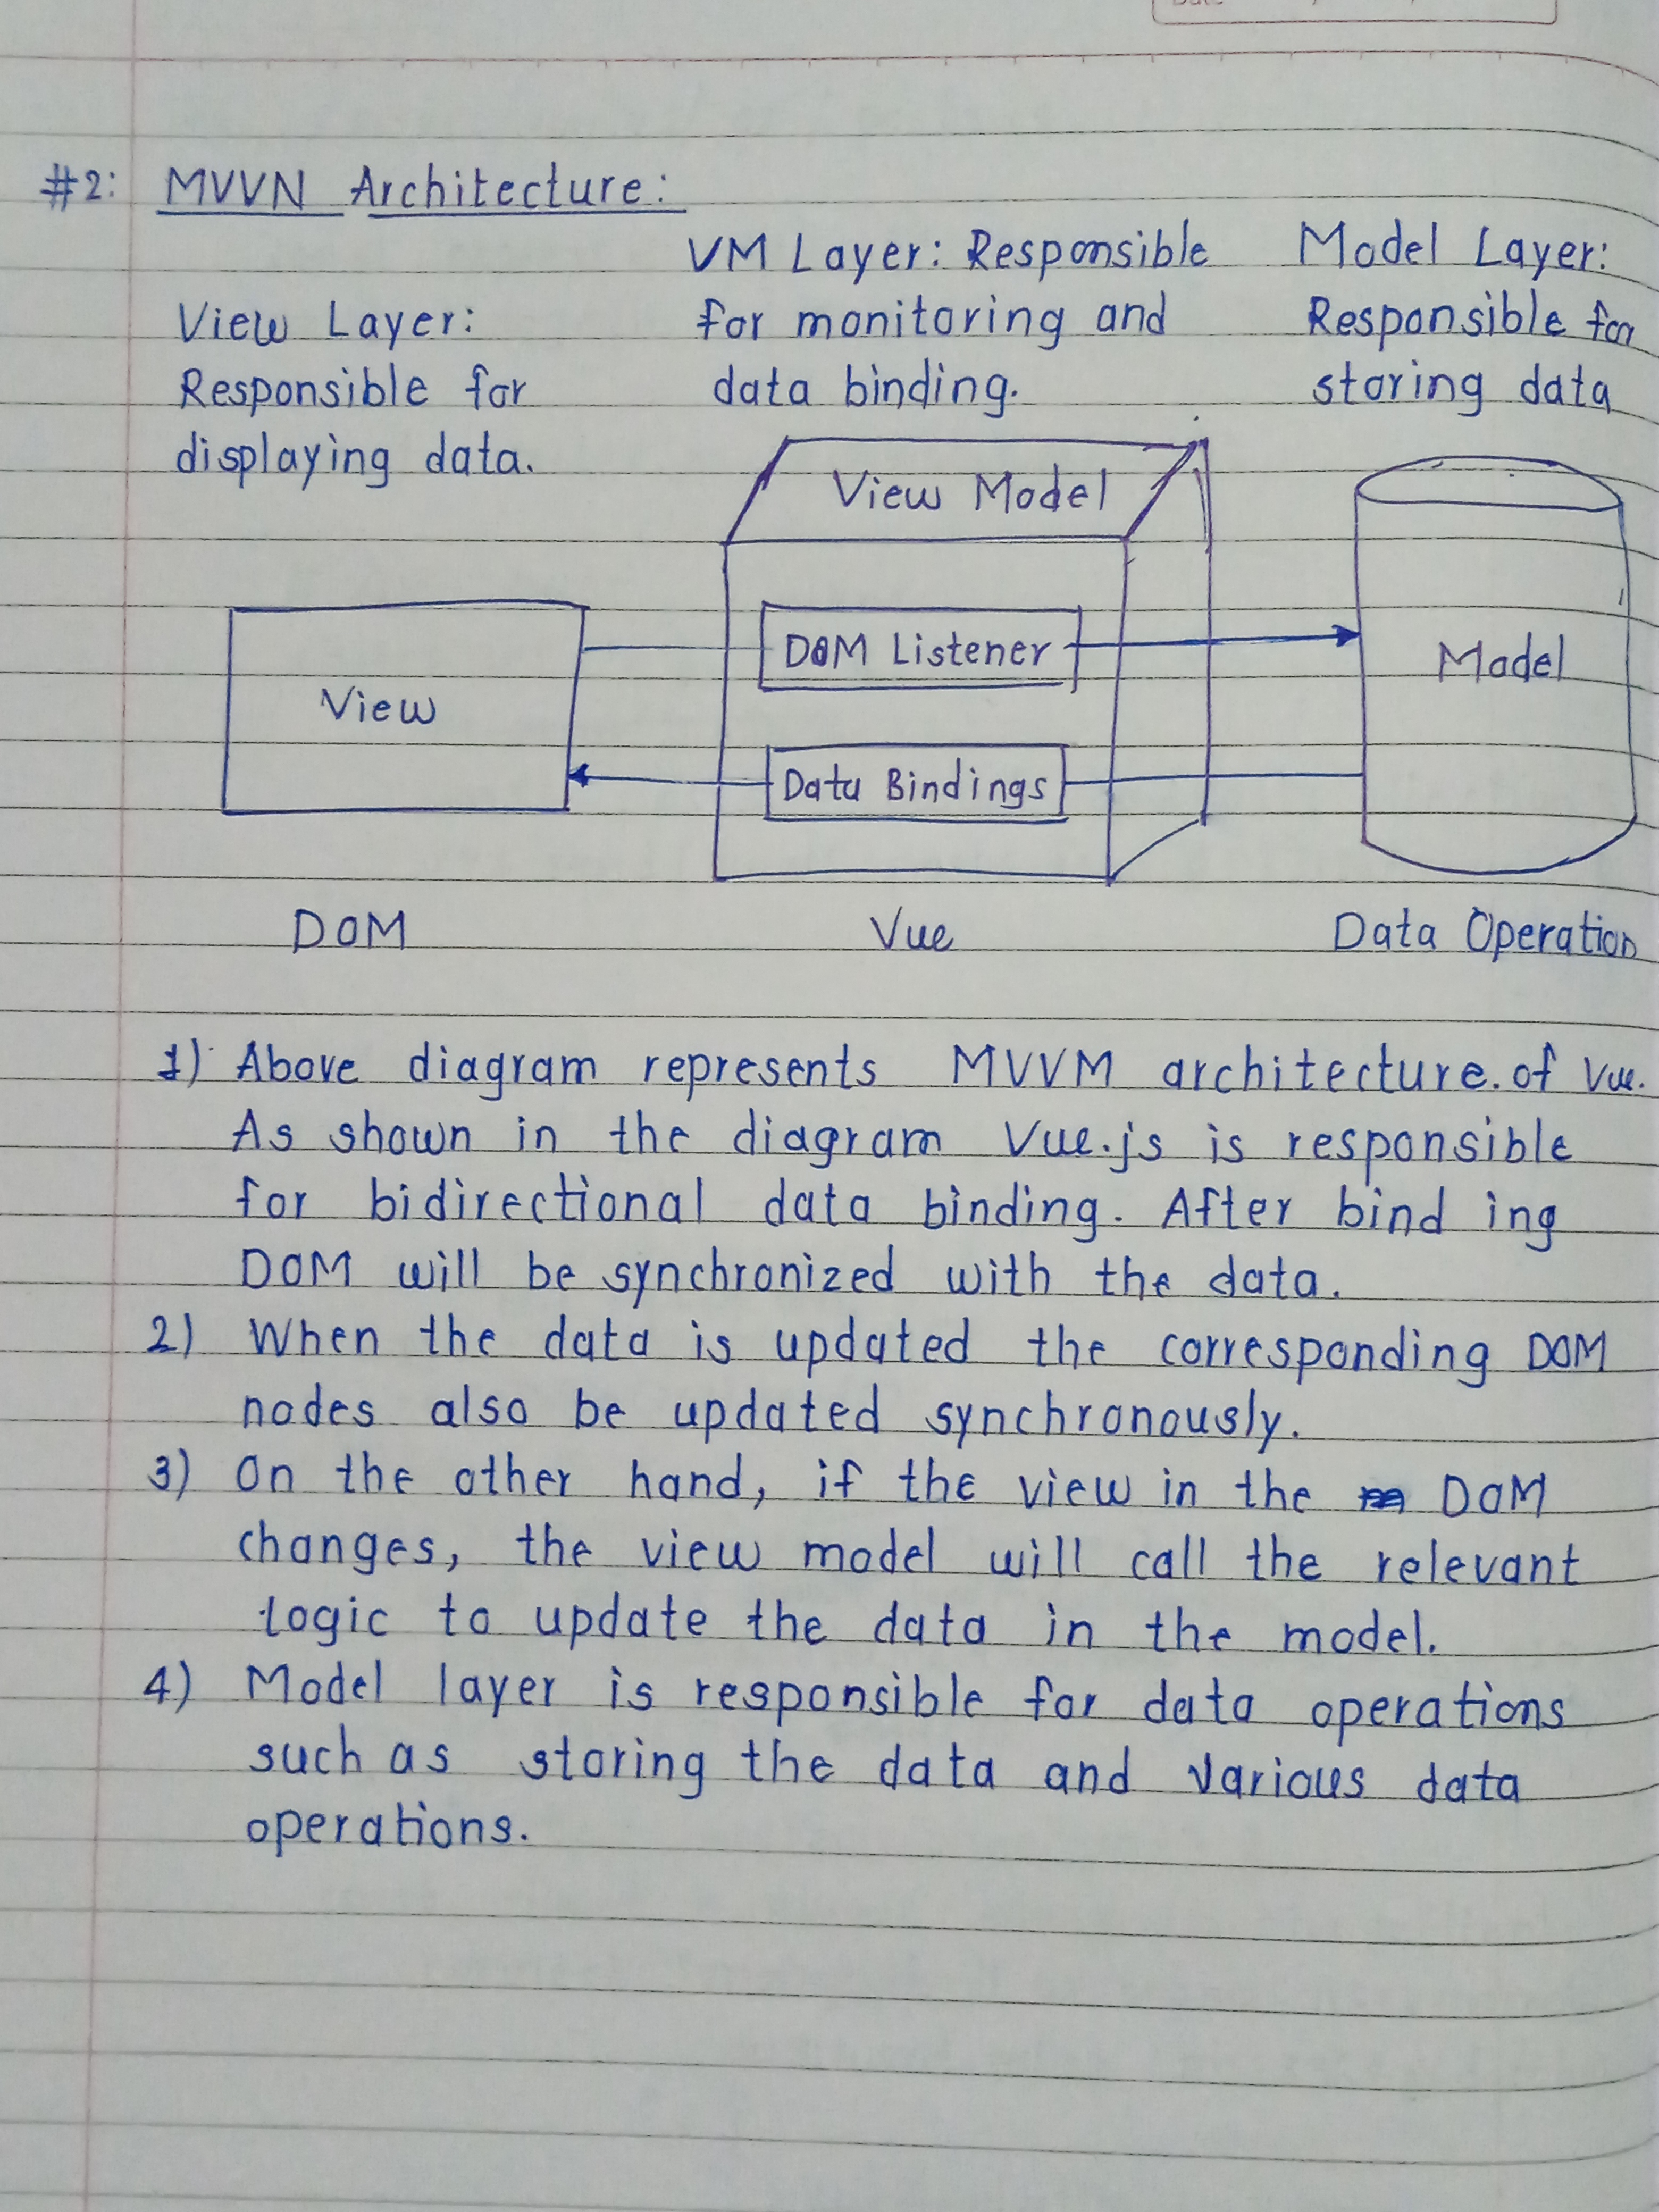 Date
#2: MVVN Architecture:
VM Layer: Responsible
for monitoring and
data binding.
Model Layer:
Responsible for
storing data
View Layer:
Responsible for
displaying data.
View Model
DOM Listener
Model
View
Data Bindings
DOM
Vue
Data Operation
1) Above diagram represents MVVM architecture. of Vue.
As shown in the diagram Vue.js is responsible
for bidirectional data binding. After bind ing
DOM will be synchronized with the data.
2) When the data is updated the corresponding DOM
nodes also be updated synchronously.
3) On the other hand, if the view in the DOM
changes, the view model will call the relevant
logic to update the data in the model.
4) Model layer is responsible for data operations
such as storing the data and various data
operations.